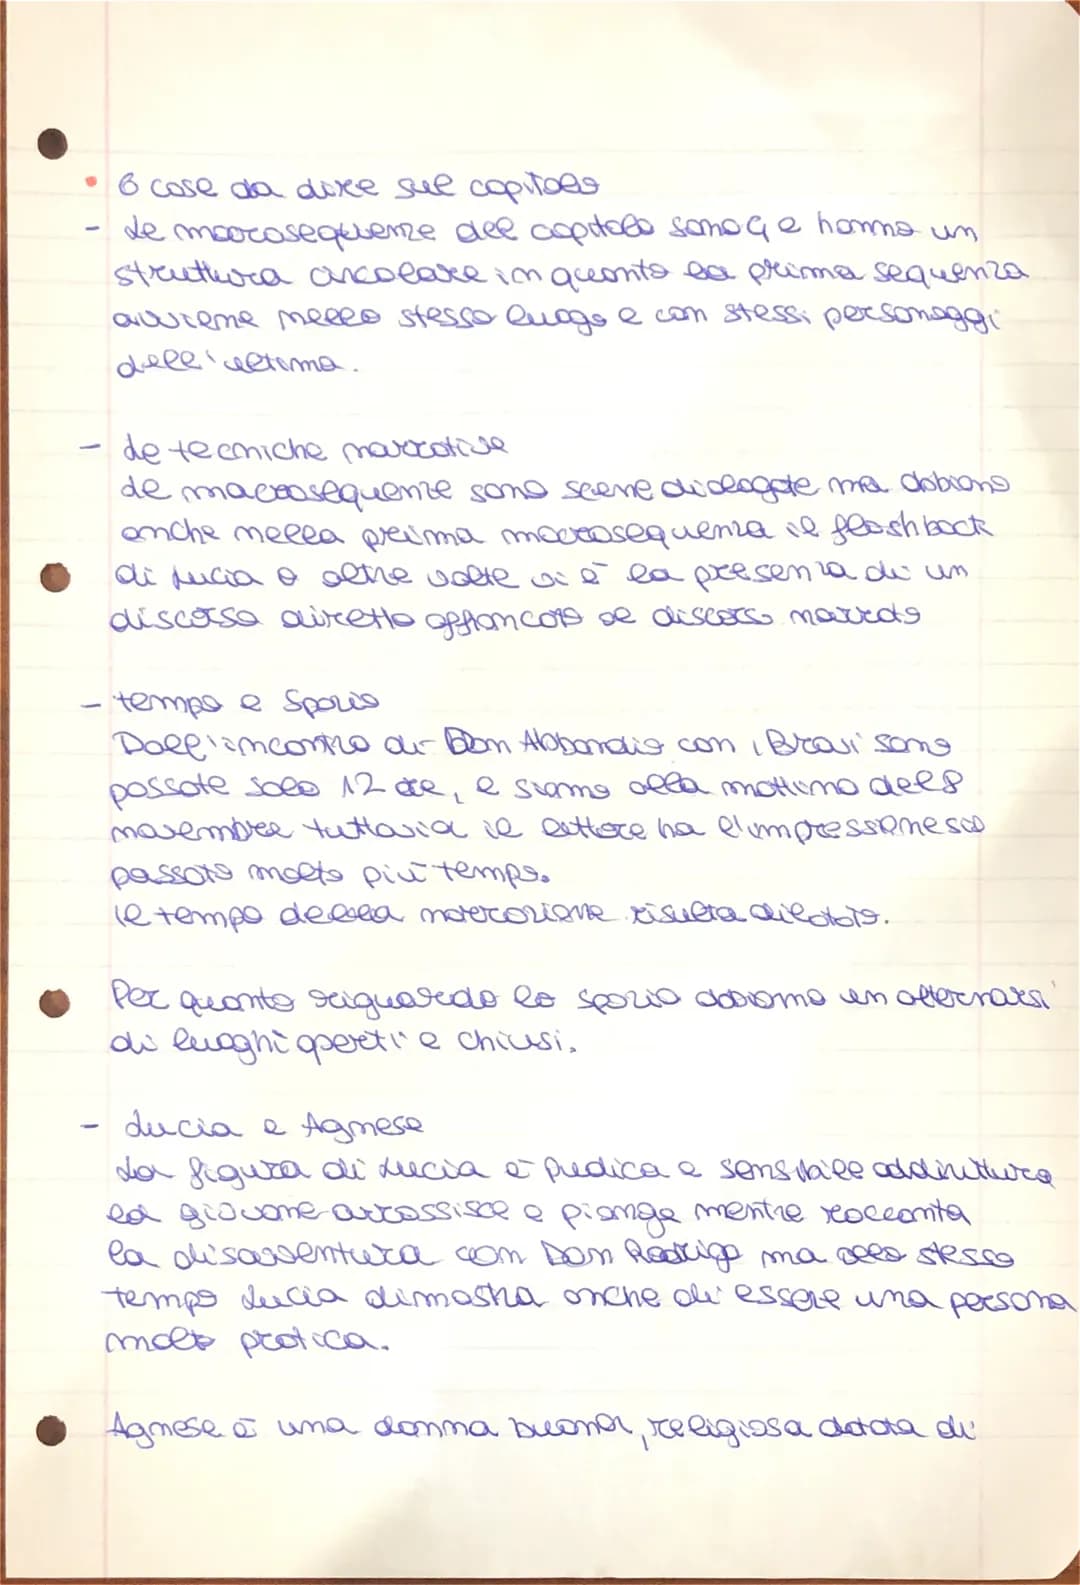 • 6 cose da dire sul capitolo
- Le macrosequenze del capitolo sono 4 e hanno un
struttura circolare in quanto la prima sequenza
avviene nello stesso luogo e con stessi personaggi
dell'ultima.
- Le tecniche narrative
Le macrosequenze sono scene dialogate ma abbiamo
anche nella prima macrosequenza il flashback
di Lucia o altre volte vi è la presenza di un
discorso diretto affiancato al discorso narrato
- tempo e Spazio
Dall'incontro di Don Abbondio con i Bravi sono
passate solo 12 ore, e siamo alla mattina dell'8
novembre tuttavia il lettore ha l'impressione sia
passato molto più tempo.
il tempo della narrazione risulta dilatato.
Per quanto riguarda lo spazio abbiamo un alternarsi
di luoghi aperti e chiusi.
- Lucia e Agnese
La figura di Lucia è pudica e sensibile addirittura
la giovane arrossisce e piange mentre racconta
la disavventura con Don Rodrigo ma allo stesso
tempo Lucia dimostra anche di essere una persona
molto pratica.
Agnese è una donna buona, religiosa dotata di